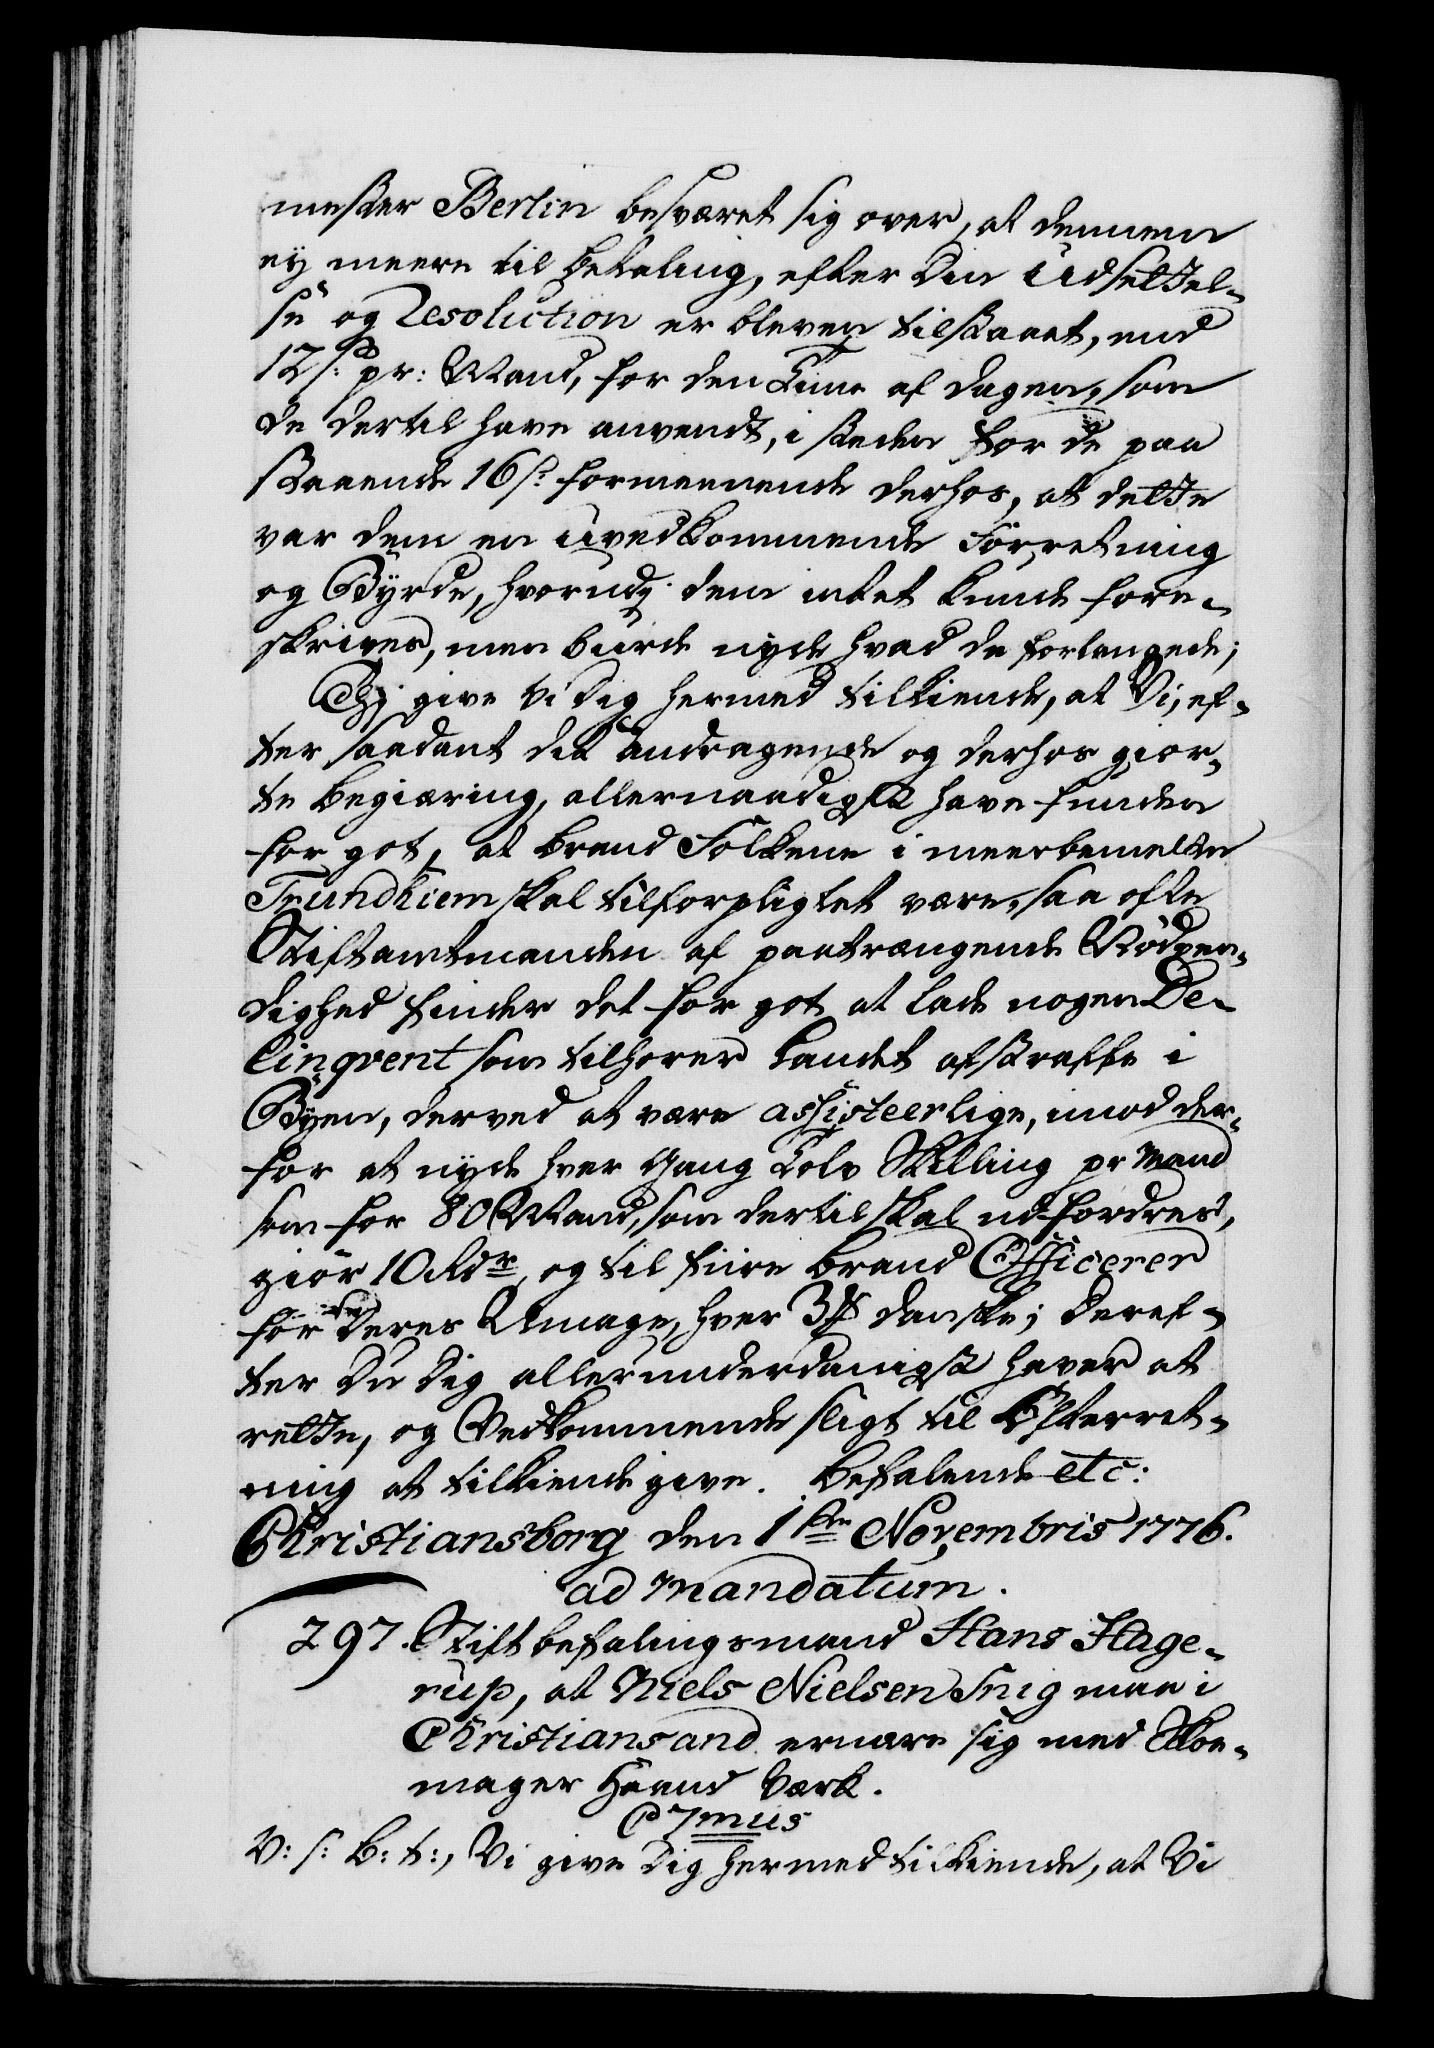 mester Berlin besværet sig over, at dennem
ey meere til betaling, efter din Udsettel-
se og Resolution er bleven tilstaaet, end
12 s: pr: Mand, for den Time af dagen, som
de dertil have anvendt, i steden for de paa
staaende 16 s: formeenende derhos, at dette
var dem en uvedkommende Forretning
og Byrde, hvorudj dem intet kunde fore-
skrives, men burde nyde hvad de forlangede;
Thj give Vi Dig hermed tilkiende, at Vi, ef-
ter saadant dit andragende og derhos gior-
te begiæring, allernaadigst have funden
for got, at brand Folkene i meerbemelte
Trundhiem skal tilforpligtet være, saa ofte
Stiftamtmanden af paatrængende Nødven-
dighed finder det for got at lade nogen De-
linqvent som tilhører Landet afstraffe i
Byen, derved at være assisteerlige, imod der-
for at nyde hver Gang Tolv Skilling pr Mand
som for 80 Mand, som dertil skal udfordres,
giør 10 Rdr, og til fiire brand Officerer
for deres Umage, hver 3 ß danske; deref-
ter Du Dig allerunderdanigst haver at
rette, og Vedkommende sligt til Efterret-
ning at tilkiende give. Befalende etc:
Christiansborg den 1ste Novembris 1776.
ad mandatum.
297. Stiftbefalingsmand Hans Hage-
rup, at Niels Nielsen Snig maa i
Christiansand ernære sig med Skoe-
mager Haand Værk.
C 7mus
V: s: B: t:, Vi give Dig hermed tilkiende, at Vi